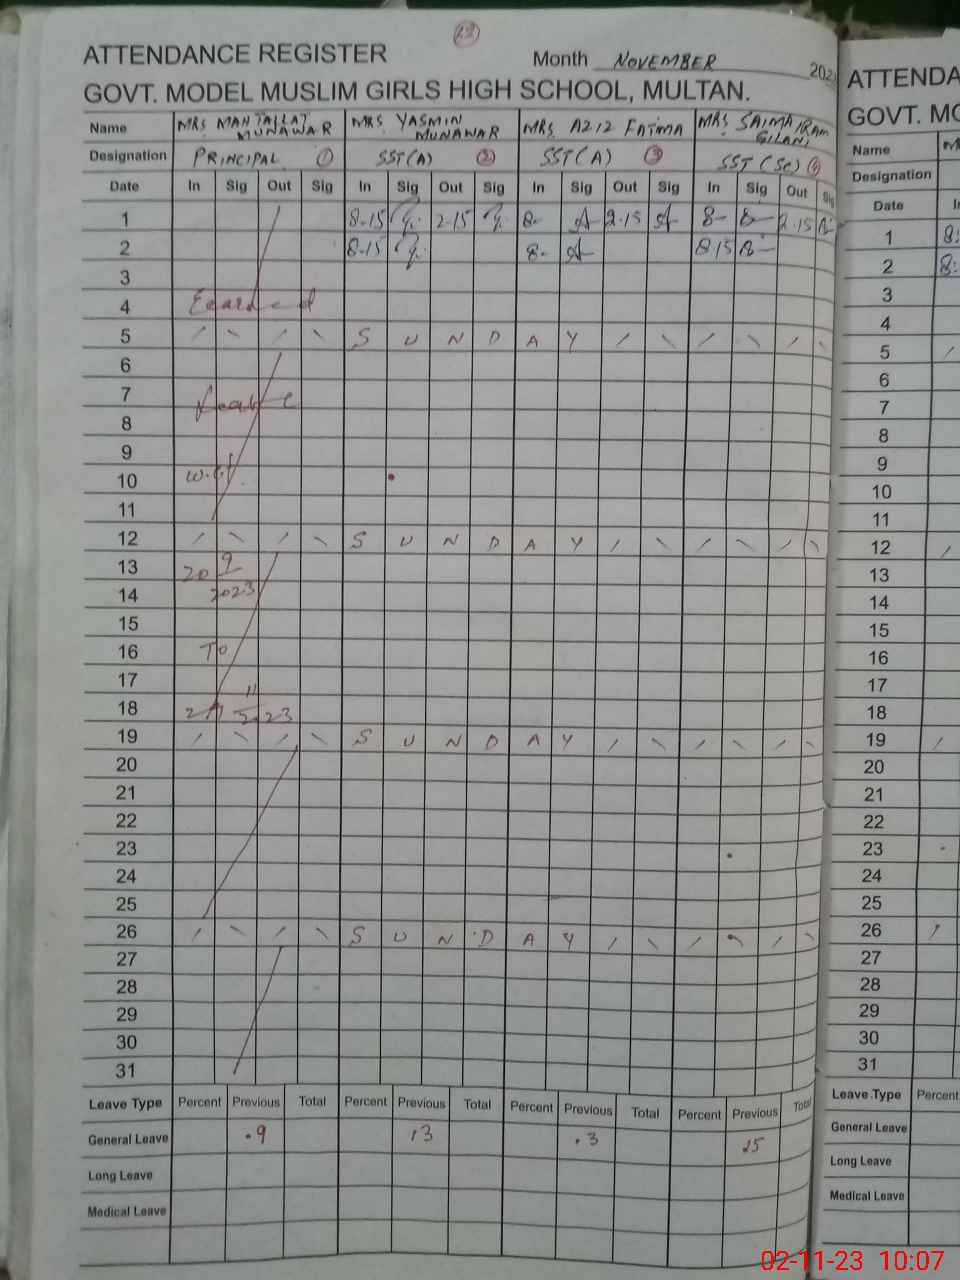 22
ATTENDANCE REGISTER Month NOVEMBER 202
GOVT. MODEL MUSLIM GIRLS HIGH SCHOOL, MULTAN.
Name MRS MUNAWAR MRS YASMIN MUNAWAR MRS AZIZ FATIMA MRS SAIMA IRAM GILANI
Designation PRINCIPAL 1 SST(A) 2 SST(A) 3 SST(SC) 4
Date In Sig Out Sig In Sig Out Sig In Sig Out Sig In Sig Out Sig
1 8-15 2-15 8- 2-15 8- 2-15
2 8-15 8- 8 15
3
4
5 / \ / \ S U N D A Y / \ / \ / \
6
7
8
9
10 w.e.f
11
12 / \ / \ S U N D A Y / \ / \ / \
13 20 9
14 2023
15
16 To
17
18 11 23
19 / \ / \ S U N D A Y / \ / \ / \
20
21
22
23
24
25
26 / \ / \ S U N D A Y / \ / \ / \
27
28
29
30
31
Leave Type Percent Previous Total Percent Previous Total Percent Previous Total Percent Previous Total
General Leave .9 13 .3
Long Leave
Medical Leave
ATTENDA
GOVT. MO
Name M
Designation
Date I
1 8:
2 8:
3
4
5 /
6
7
8
9
10
11
12 /
13
14
15
16
17
18
19 /
20
21
22
23
24
25
26 /
27
28
29
30
31
Leave Type Percent
General Leave
Long Leave
Medical Leave
02-11-23 10:07